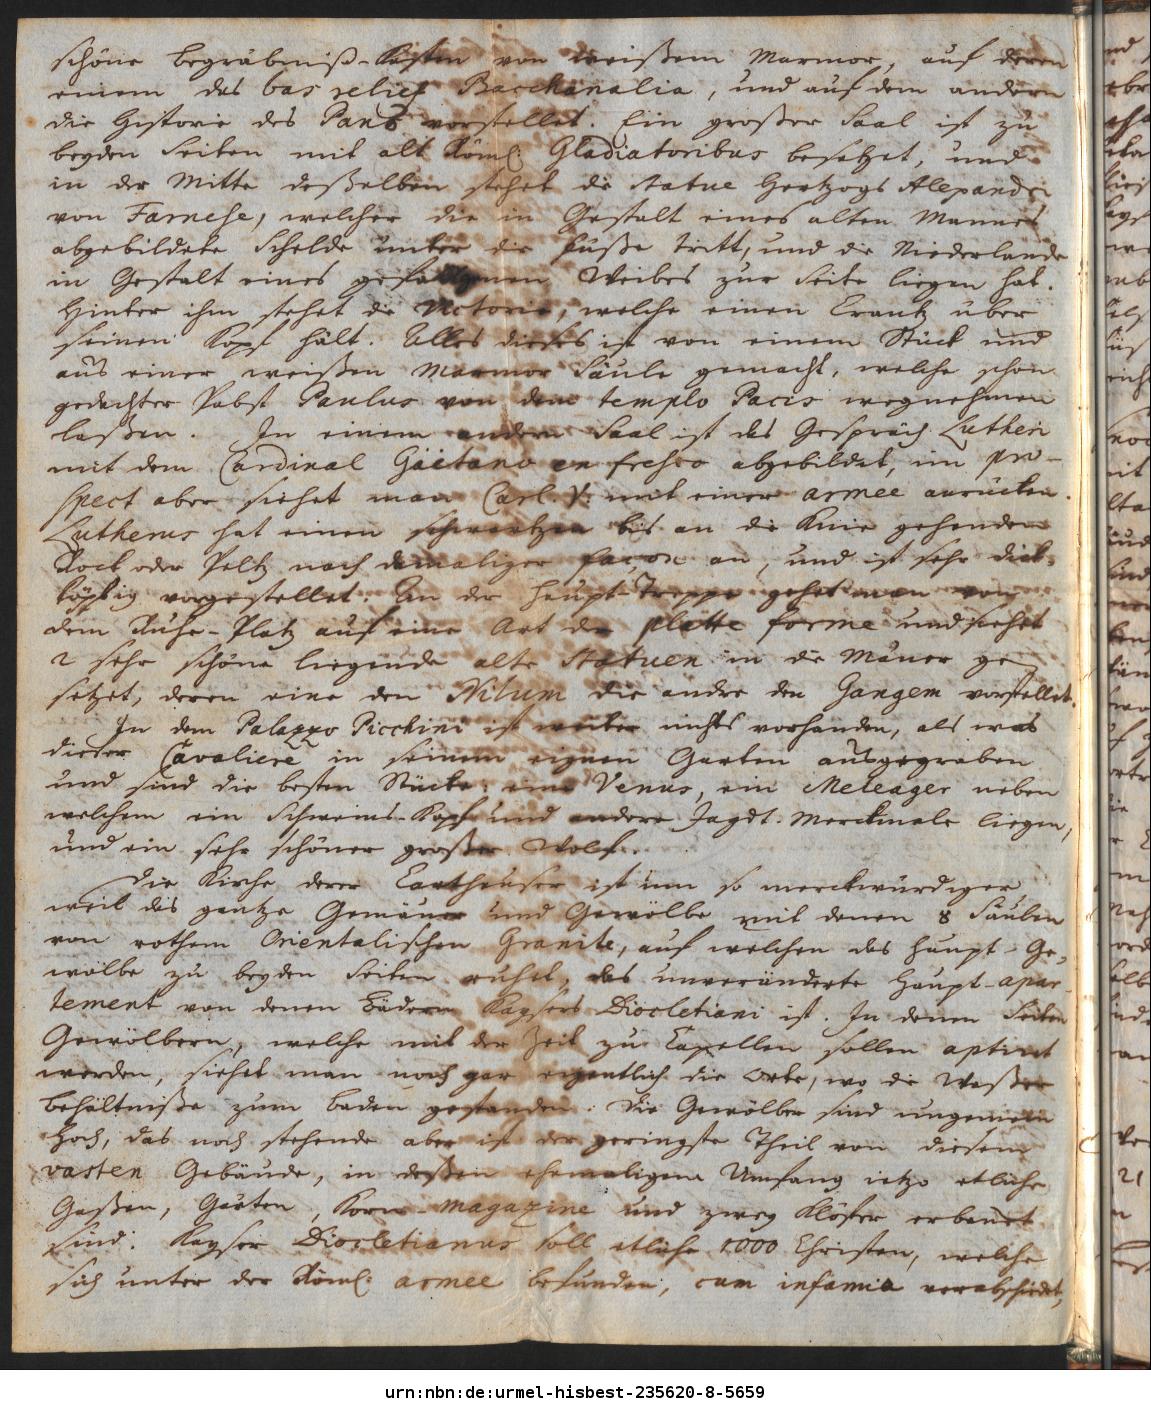 schöne begräbniß-Kasten von weißem Marmor, auf deren
einem das bas relief Bacchanalia, und auf dem andern
die Historie des Pans vorstellet. Ein großer Saal ist zu
beyden Seiten mit alt Röml: Gladiatoribus besetzet, und
in der Mitte deßelben stehet die statue Hertzogs Alexandri
von Farnese, welcher die in Gestalt eines alten Mannes
abgebildete Schelde unter die Füße tritt, und die Niederlande
in Gestalt eines gefangenen Weibes zur Seite liegen hat.
Hinter ihm stehet die Victorie, welche einen Crantz über
seinen Kopf hält. Alles dieses ist von einem Stück und
aus einer weißen Marmor Säule gemacht, welche schon
gedachter Pabst Paulus von dem templo Pacis wegnehmen
laßen. In einem andern Saal ist das Gespräch Lutheri
mit dem Cardinal Gaëtano en fresco abgebildet, im pro-
spect aber siehet man Carl. V. mit einer armee anrücken.
Lutherus hat einen schwartzen bis an die Knie gehenden
Rock oder Peltz nach damaliger façon an, und ist sehr dick-
köpfig vorgestellet. An der Haupt-Treppe gehet man von
dem Ruhe-Platz auf eine Art der platte forme und siehet
2 sehr schöne liegende alte Statuen in die Mauer ge-
setzet, deren eine den Nilum die andre den Gangem vorstellet.
In dem Palazzo Picchini ist weiter nichts vorhanden, als was
dieser Cavaliere in seinem eignen Garten ausgegraben
und sind die besten Stücke: eine Venus, ein Meleager neben
welchem ein Schweins-Kopf und andere Jagdt-Merckmale liegen,
und ein sehr schöner großer Wolf.
Die Kirche derer Carthäuser ist um so merckwürdiger,
weil das gantze Gemäuer und Gewölbe mit denen 8 Säulen
von rothem Orientalischen Granite, auf welchen das Haupt-Ge-
wölbe zu beyden Seiten ruhet, das unveränderte Haupt-apar-
tement von denen Bädern Kaysers Diocletiani ist. In denen Seiten
Gewölbern, welche mit der Zeit zu Capellen sollen aptirt
werden, siehet man noch gar eigentlich die Orte, wo die Waßer
behältniße zum baden gestanden. Die Gewölber sind ungemein
hoch, das noch stehende aber ist der geringste Theil von diesem
vasten Gebäude, in deßen ehemaligen Umfang ietzo etliche
Gaßen, Gärten, Korn-magazine und zwey Klöster erbauet
sind. Kayser Diocletianus soll etliche 1000 Christen, welche
sich unter der Röml: armee befunden, cum infamia verabschiedet,
urn:nbn:de:urmel-hisbest-235620-8-5659